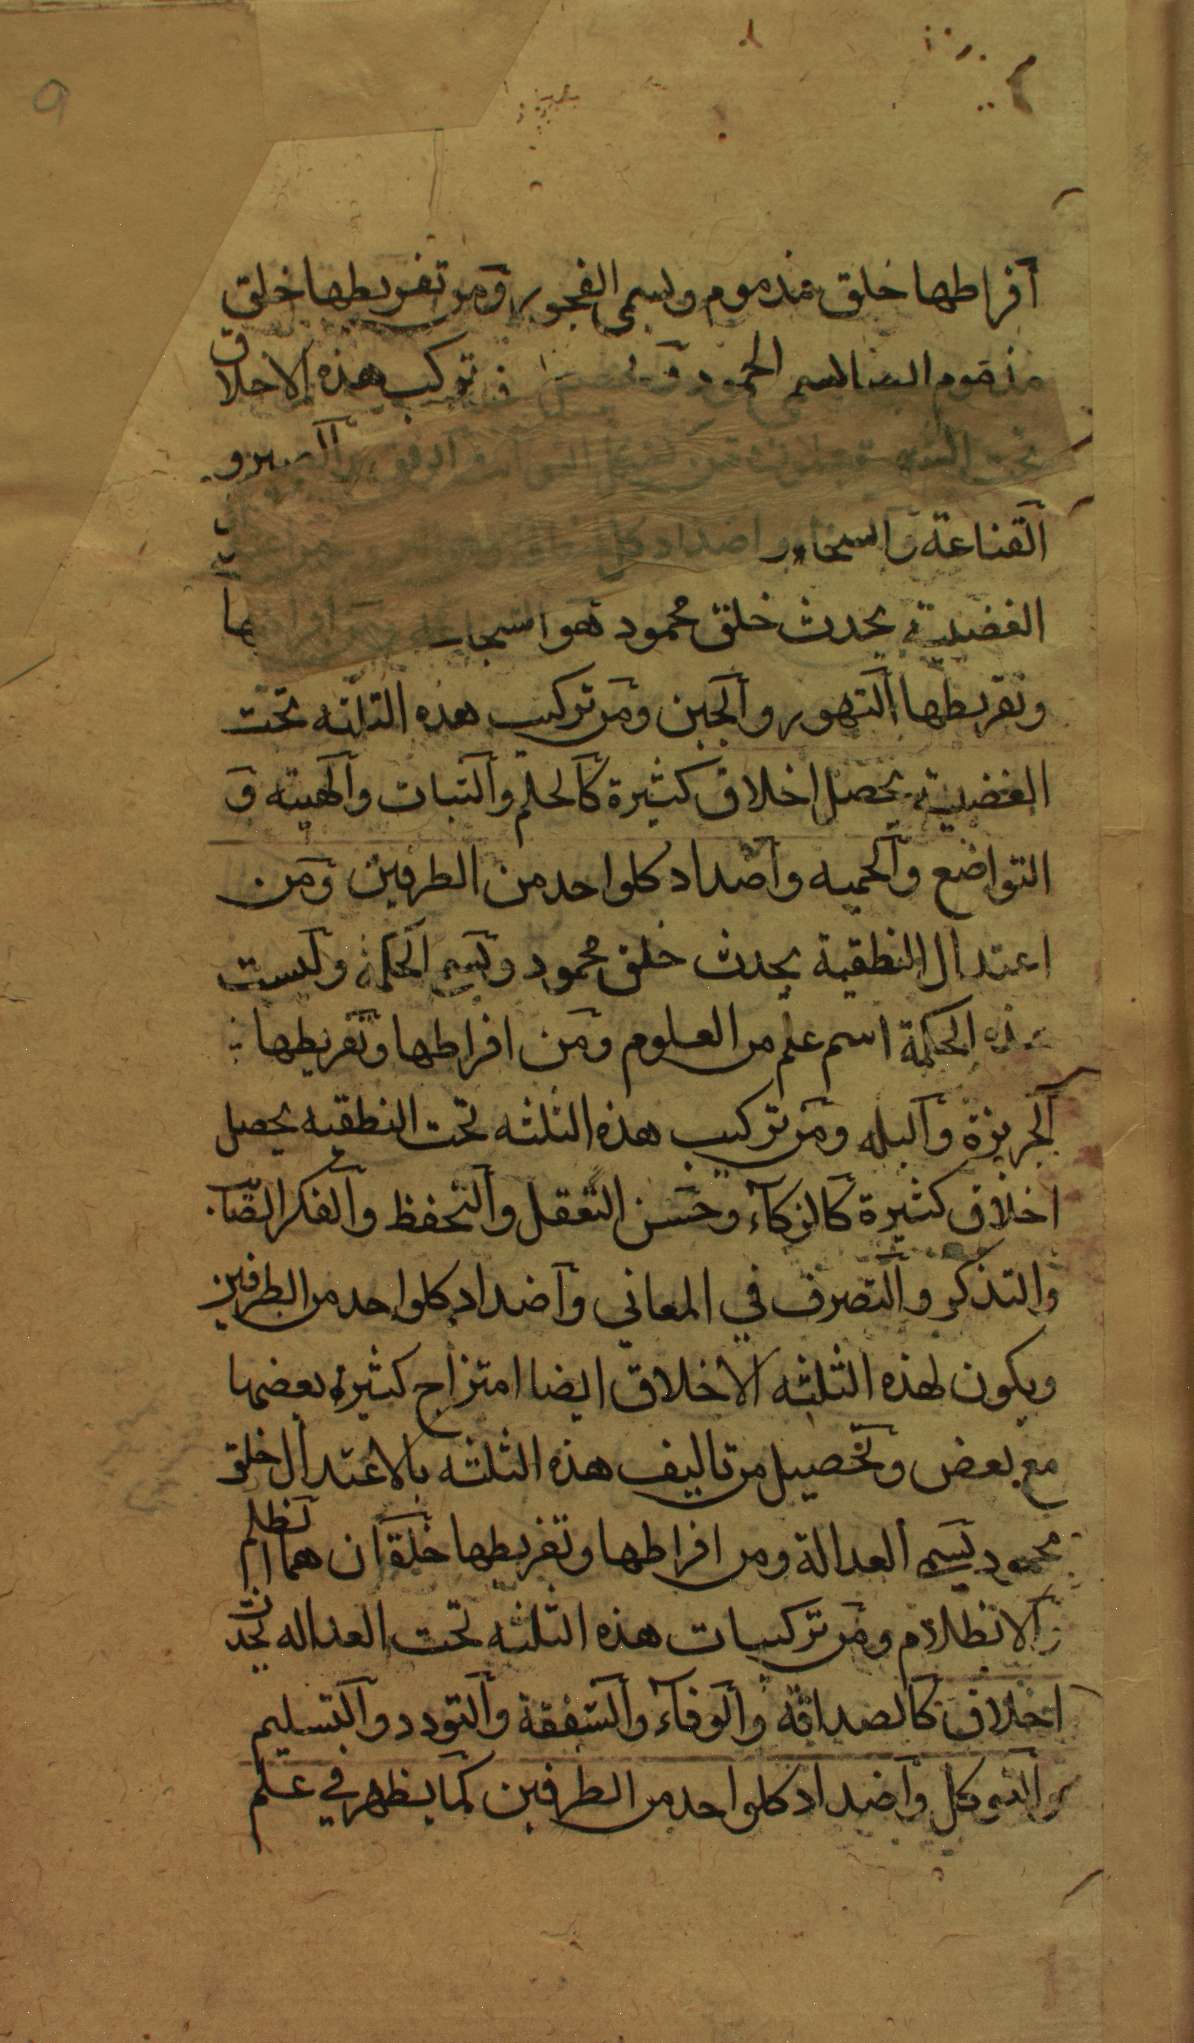 افراطها خلق مذموم ويسمى الفجور ومن تفريطها خلق
مذموم ايضا يسمى الخمود تركب هذه الاخلاق
تحت الشهوية
القناعة والسخاء واضداد كل
الغضبية يحدث خلق محمود هو الشجاعة
وتفريطها التهور والجبن ومن تركيب هذه الثلثه تحت
الغضبية يحصل اخلاق كثيرة كالحلم والثبات والهيبه و
التواضع والحميه واضداد كلواحد من الطرفين ومن
اعتدال النطقية يحدث خلق محمود ويسمى الحكمة وليست
هذه الحكمة اسم علم من العلوم ومن افراطها وتفريطها
الجربزة والبله ومن تركيب هذه الثلثه تحت النطقيه يحصل
اخلاق كثيرة كالزكاء وحسن التعقل والتحفظ والفكر الصا
والتذكر والتصرف في المعاني واضداد كلواحد من الطرفين
ويكون لهذه الثلثه الاخلاق ايضا امتزاج كثيرة بعضها
مع بعض وتحصيل من تاليف هذه الثلثه بالاعتدال خلق
محمود يسمى العدالة ومن افراطها وتفريطها خلقان هما الظلم
والانظلام ومن تركيبات هذه الثلثه تحت العداله يحدث
اخلاق كالصداقة والوفاء والشفقة والتودد والتسليم
والتوكل واضداد كلواحد من الطرفين كما يظهر في علم